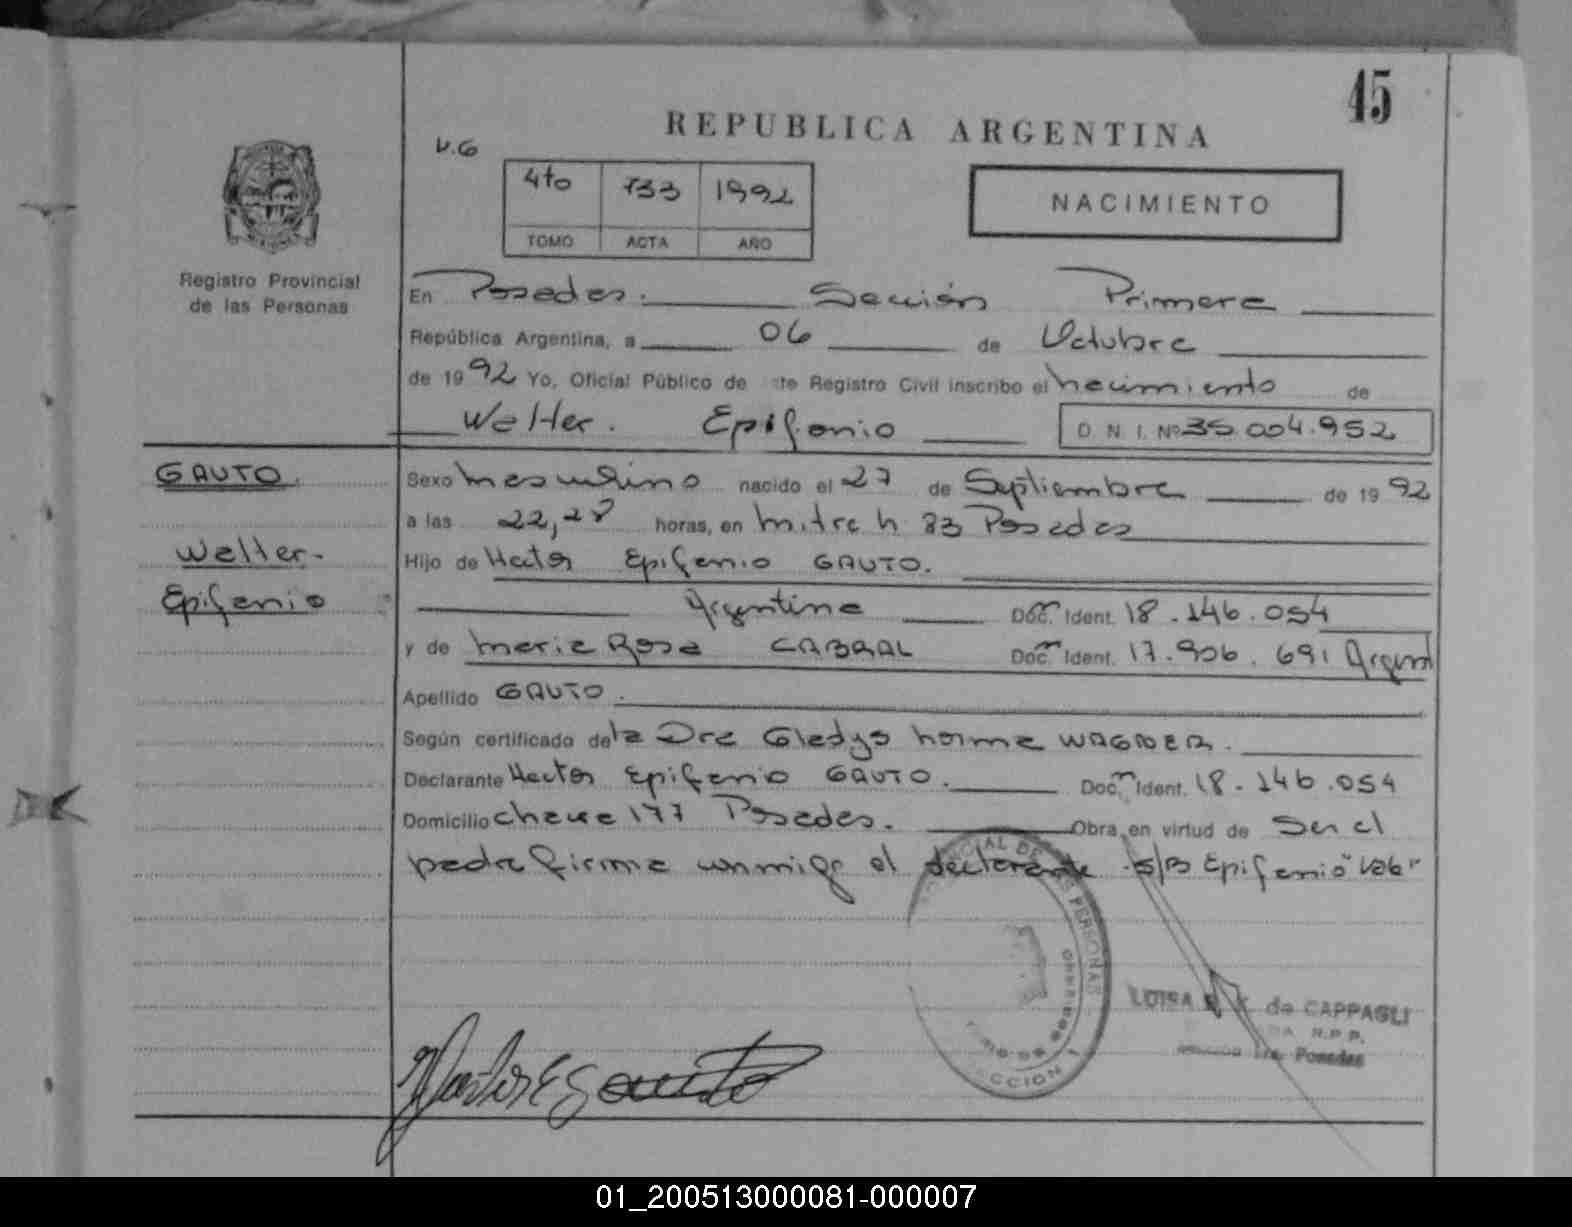 45
REPUBLICA ARGENTINA
V.G
4to 733 1992
TOMO ACTA AÑO
NACIMIENTO
Registro Provincial
de las Personas
En Posadas. Sección Primera
República Argentina, a 06 de Octubre
de 1992 Yo, Oficial Público de te Registro Civil inscribo el nacimiento de
Walter. Epifanio D. N. I. Nº 35.004.952
GAUTO.
Walter-
Epifanio
Sexo masculino nacido el 27 de Septiembre de 1992
a las 22,28 horas, en Mitre n. 83 Posadas
Hijo de Hector Epifanio GAUTO.
Argentina Doc. Ident. 18.146.054
y de Maria Rosa CABRAL Doc. Ident. 17.906.691 Argent
Apellido GAUTO.
Según certificado de la Dra Gladys Norma WAGNER.
Declarante Hector Epifanio GAUTO. Doc. Ident. 18.146.054
Domicilio Chacra 177 Posadas. Obra en virtud de Ser el
padre firma conmigo el declarante s/B Epifanio "Vale"
DE LAS PERSONAS
SECCION 1
LUISA de CAPPAGLI
R.P.P.
1ra. Posadas
Hector E Gauto
01_200513000081-000007